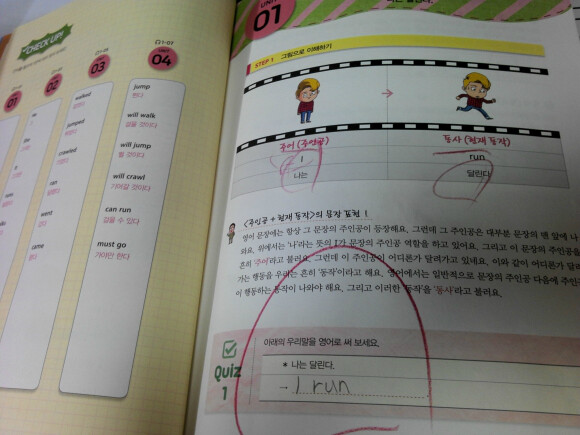 CHECK UP!
01
02
03
04
1-03
jump
뛴다
will walk
걸을 것이다
will jump
뛸 것이다
will crawl
기어갈 것이다
can run
달릴 수 있다
must go
가야만 한다
walked
jumped
crawled
ran
went
갔다
came
왔다
UNIT
01
STEP 1 그림으로 이해하기
주어 (주인공)
동사 (현재 동작)
I
run
나는
달린다.
<주인공 + 현재 동작>의 문장 표현 1
영어 문장에는 항상 그 문장의 주인공이 등장해요. 그런데 그 주인공은 대부분 문장의 맨 앞에 나
와요. 위에서는 '나'라는 뜻의 I가 문장의 주인공 역할을 하고 있어요. 그리고 이 문장의 주인공을
흔히 '주어'라고 불러요. 그런데 이 주인공이 어디론가 달려가고 있네요. 이와 같이 어디론가 달려
가는 행동을 우리는 흔히 '동작'이라고 해요. 영어에서는 일반적으로 문장의 주인공 다음에 주인
이 행동하는 동작이 나와야 해요. 그리고 이러한 '동작'을 '동사'라고 불러요.
Quiz
1
아래의 우리말을 영어로 써 보세요.
* 나는 달린다.
→ I run